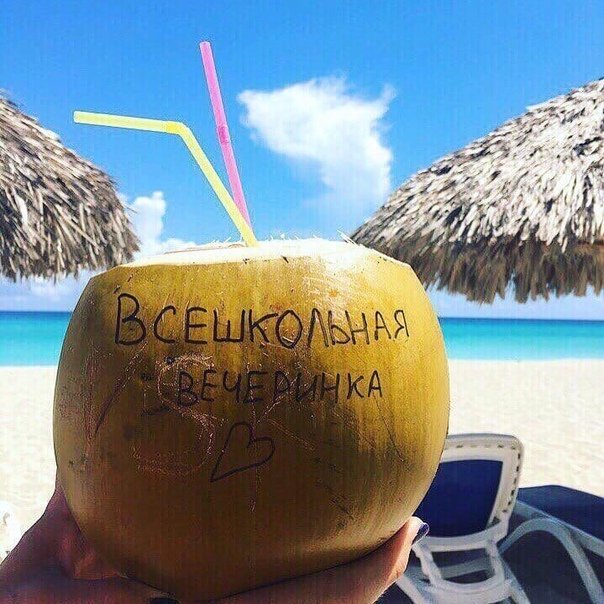 Всешкольная
вечеринка